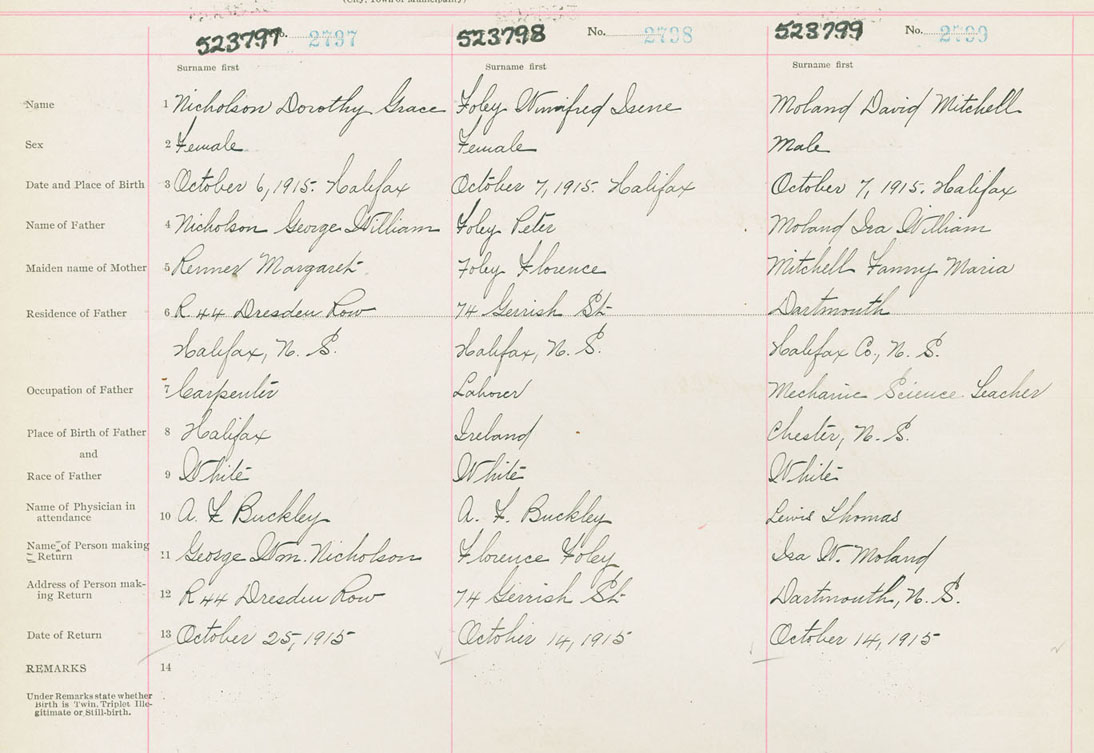 (City, Town or Municipality)
523797 No. 2797 523798 No. 2798 523799 No. 2799
Surname first Surname first Surname first
Name 1 Nicholson Dorothy Grace Foley Winifred Isene Moland David Mitchell
Sex 2 Female Female Male
Date and Place of Birth 3 October 6, 1915. Halifax October 7, 1915. Halifax October 7, 1915. Halifax
Name of Father 4 Nicholson George William Foley Peter Moland Ira William
Maiden name of Mother 5 Renner Margaret Foley Florence Mitchell Fanny Maria
Residence of Father 6 R 44 Dresden Row 74 Gerrish St Dartmouth
Halifax, N. S. Halifax, N. S. Halifax Co., N. S.
Occupation of Father 7 Carpenter Laborer Mechanic Science Teacher
Place of Birth of Father 8 Halifax Ireland Chester, N. S.
and
Race of Father 9 White White White
Name of Physician in
attendance 10 A. F. Buckley A. F. Buckley Lewis Thomas
Name of Person making
Return 11 George Wm. Nicholson Florence Foley Ira W. Moland
Address of Person mak-
ing Return 12 R 44 Dresden Row 74 Gerrish St Dartmouth, N. S.
Date of Return 13 October 25, 1915 October 14, 1915 October 14, 1915
REMARKS 14
Under Remarks state whether
Birth is Twin, Triplet Ille-
gitimate or Still-birth.